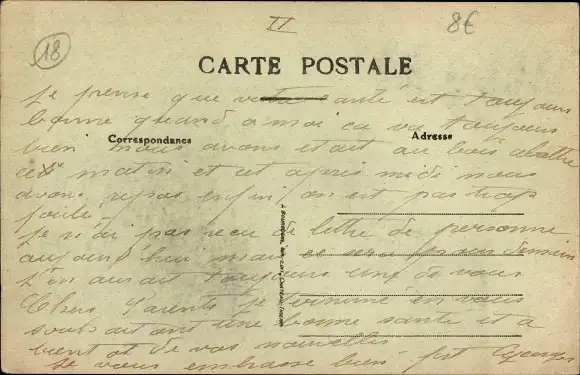 II
8€
18
CARTE POSTALE
Je pense que votre santé est toujours
bonne quand a moi ca va toujours
Correspondance
Adresse
bien nous avons était au bois abattre
ce matin et cet après midi nous
avons repos enfin on est pas trop
Je n'ai pas recu de lettre de personne
aujourd'hui mais ce sera pour demain
j'en aurait toujours une de vous
Chers Parents je termine en vous
souhaitant une bonne santé et a
bientot de vos nouvelles
Je vous embrasse bien fort Georges